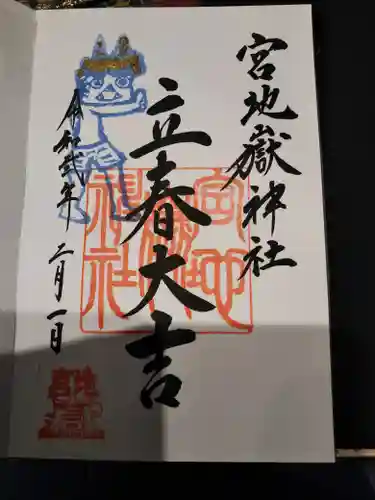 宮地嶽神社
立春大吉
令和弐年
二月一日
宮地嶽神社